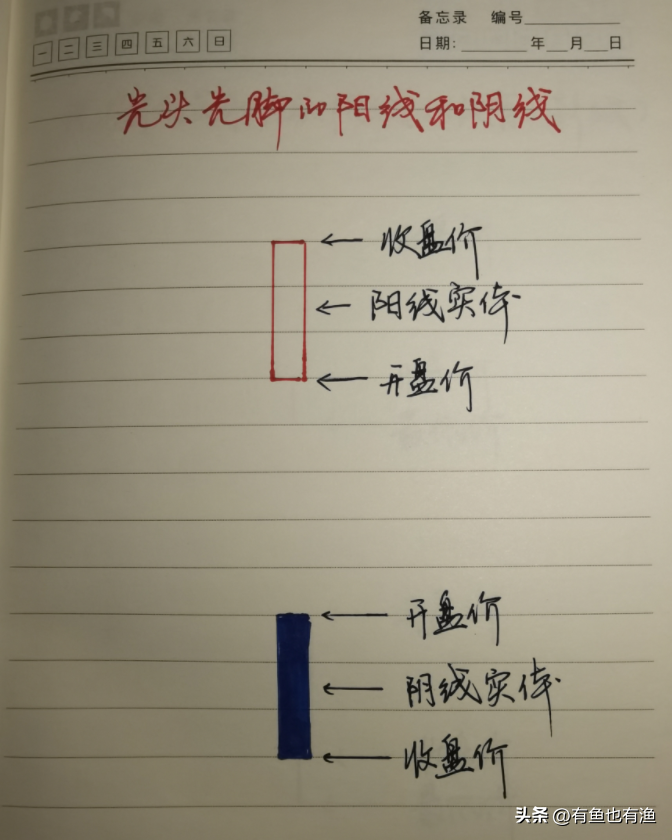 备忘录 编号
一 二 三 四 五 六 日
日期: 年 月 日
光头光脚的阳线和阴线
收盘价
阳线实体
开盘价
开盘价
阴线实体
收盘价
头条 @有鱼也有渔